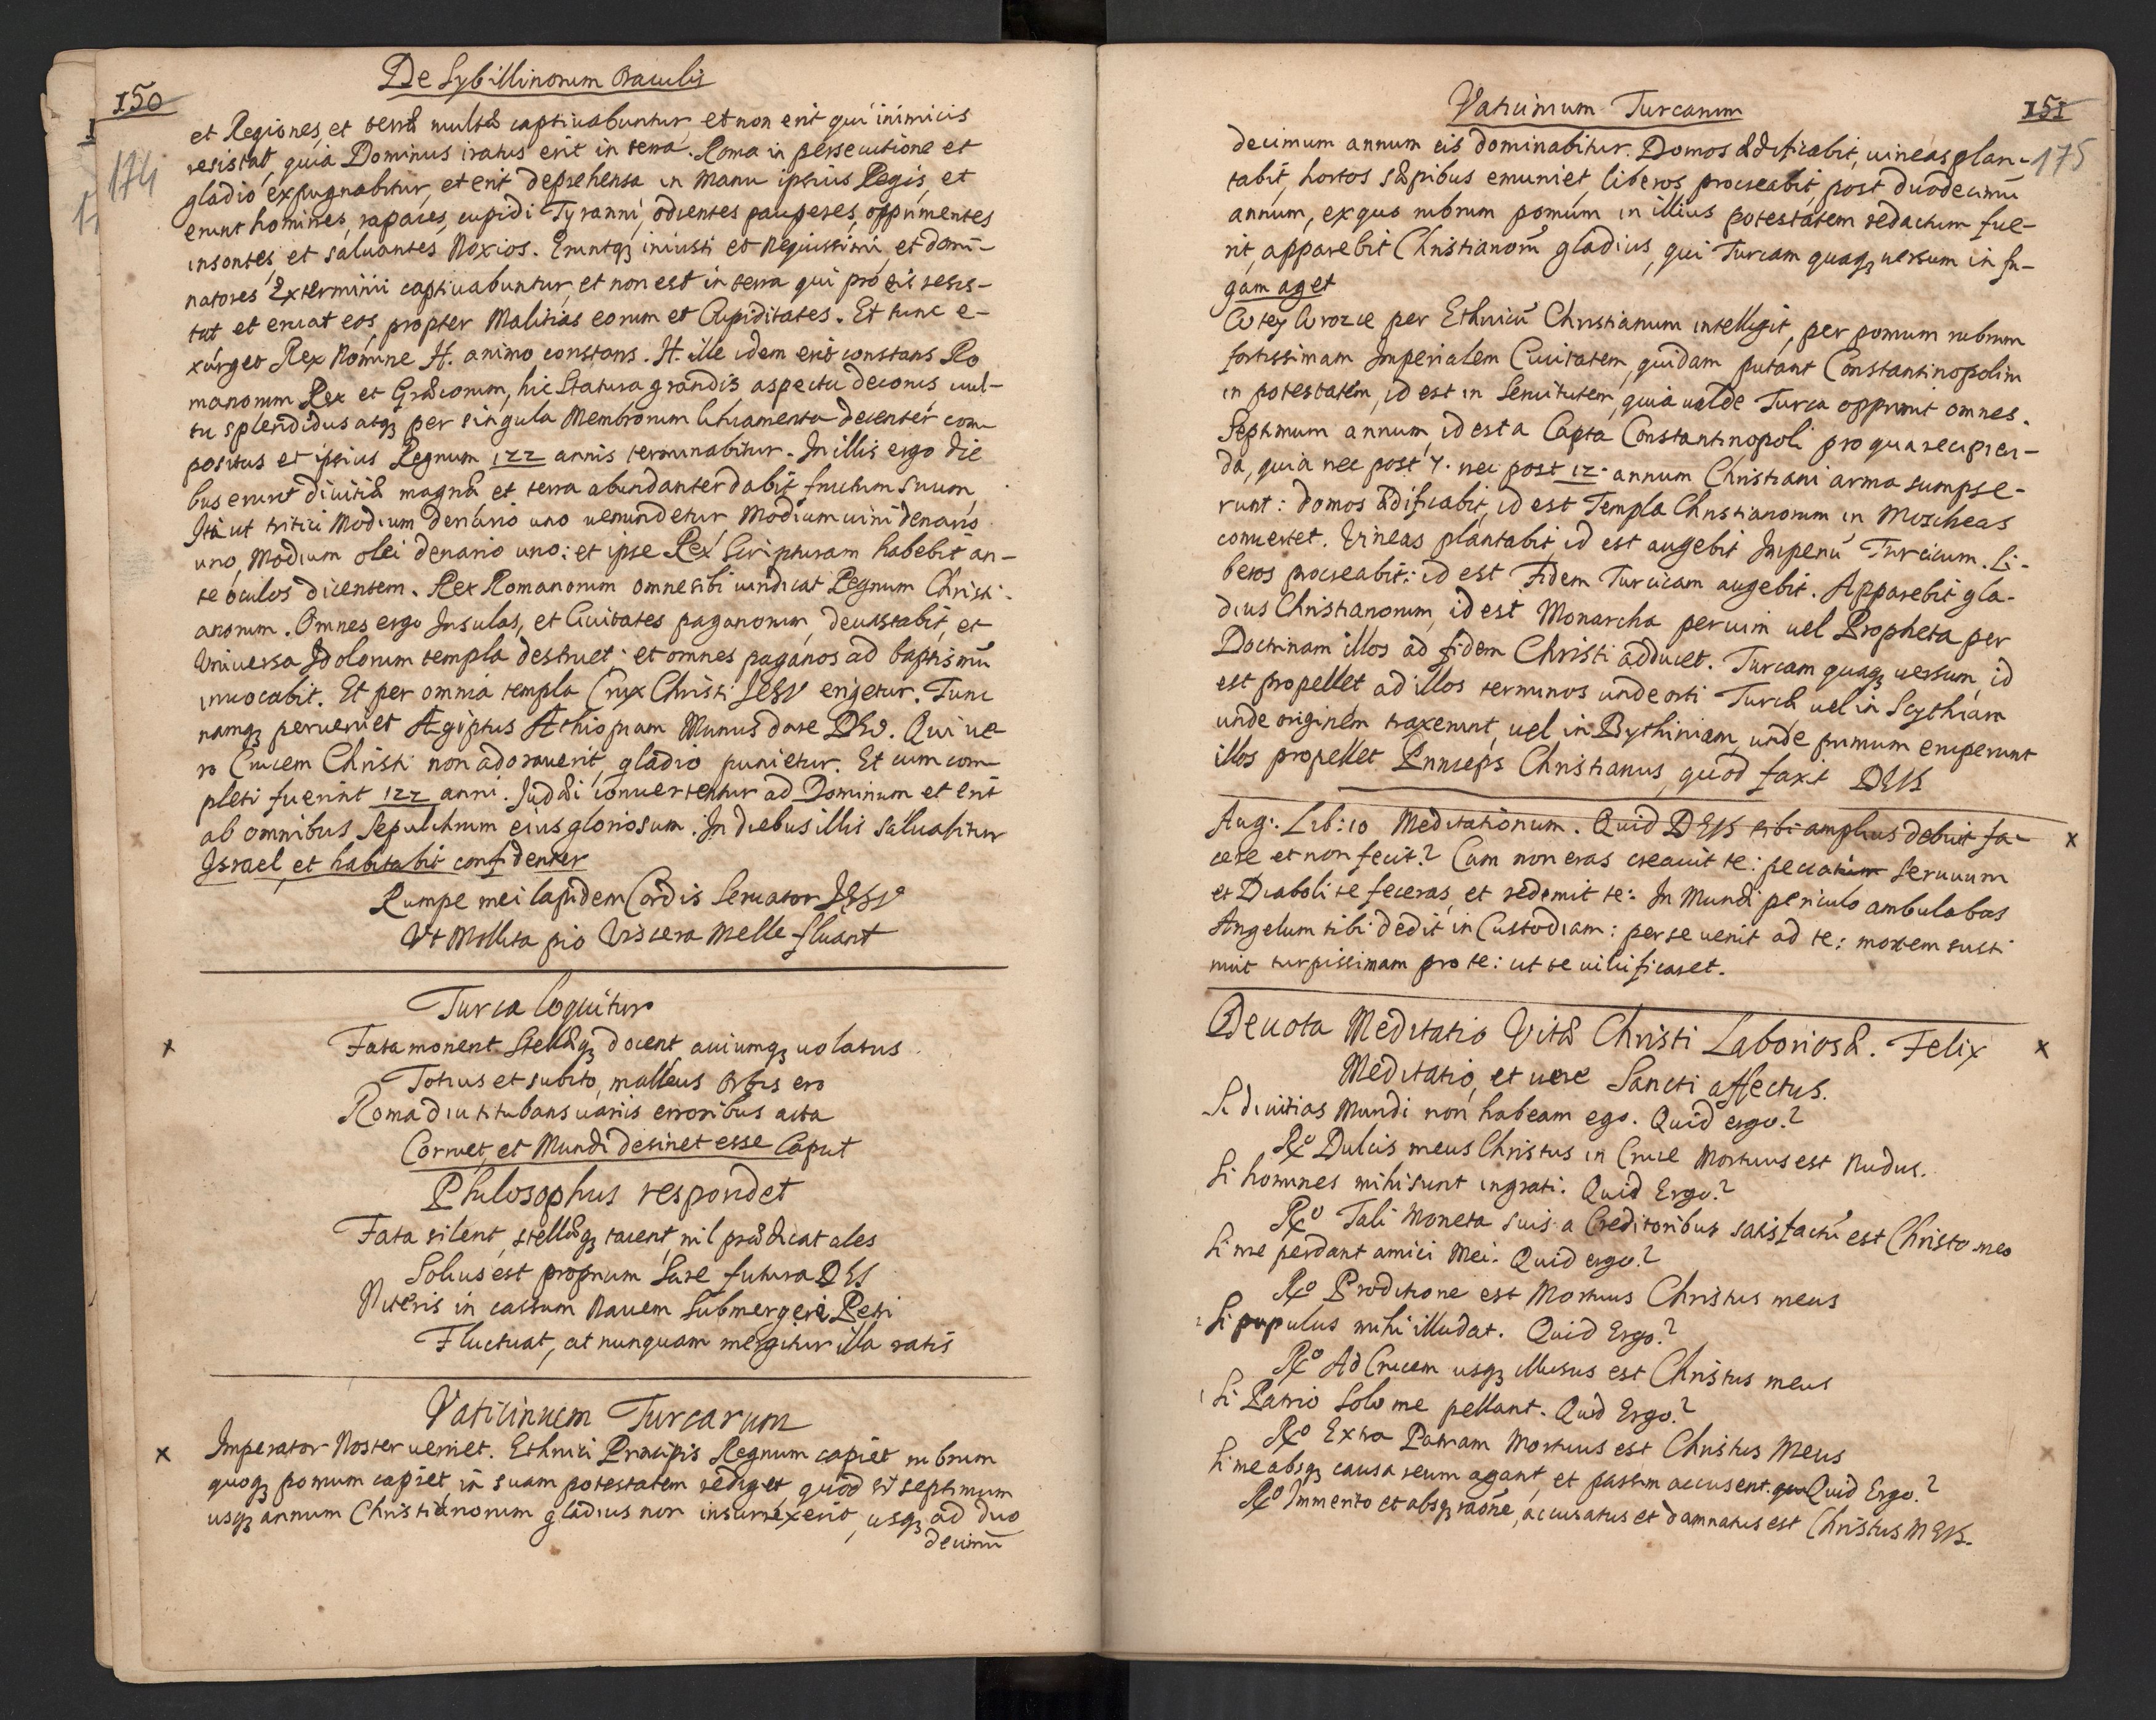 De Sybillinorum Oraculis
150
174
et Regiones, et terræ multæ captiuabuntur, et non erit qui inimicis
resistat, quia Dominus iratus erit in terra. Roma in persecutione et
gladio expugnabitur, et erit deprehensa in Manu ipsius Regis, et
erunt homines, rapaces, cupidi Tyranni, odientes pauperes, opprimentes
insontes, et saluantes Noxios. Eruntqȝ iniusti et Nequissimi, et domi-
natores Exterminii captiuabuntur, et non est in terra qui pro eis resis-
tat et eruat eos propter Malitias eorum et Cupiditates. Et tunc e-
xurget Rex Nomine H. animo constans. H. ille idem erit constans Ro
manorum Rex et Græcorum, hic Statura grandis, aspectu decorus uul-
tu splendidus atqȝ per singula Membrorum liniamenta decenter com
positus et ipsius Regnum 122 annis terminabitur. In illis ergo die
bus erunt diuitiæ magnæ et terra abundanter dabit fructum suum
Ita ut tritici Modium denario uno uenundetur Modium uini denario
uno, Modium olei denario uno: et ipse Rex Scripturam habebit an-
te oculos dicentem. Rex Romanorum omne sibi uindicat Regnum Christi-
anorum. Omnes ergo Insulas, et Ciuitates paganorum, deuastabit, et
Vniuersa Idolorum templa destruet; et omnes paganos ad baptismũ
inuocabit. Et per omnia templa Crux Christi JESV erigetur. Tunc
namqȝ perueniet Ægiptus Æthiopiam Munus dare DEO. Qui ue-
ro Crucem Christi non adorauerit, gladio punietur. Et cum com
pleti fuerint 122 anni. Judæi conuertentur ad Dominum et erit
ab omnibus Sepulchrum eius gloriosum. In diebus illis saluabitur
Israel, et habitabit confidenter
Rumpe mei lapidem Cordis Seruator JESV
Vt Mollita pio Viscera Melle fluant
Turca loquitur
x
Fata monent Stellæqȝ docent auiumqȝ uolatus
Totius et subito, malleus Orbis ero
Roma diu titubans uariis erroribus acta
Corruet, et Mundi desinet esse Caput
Philosophus respondet
Fata silent, stellæqȝ tacent, nil prædicat ales
Solius est proprium Scire futura DEI
Niteris in cassum Nauem Submergere Petri
Fluctuat, at nunquam mergitur illa ratis
Vaticinuem Turcarum
x
Imperator Noster ueniet. Ethnici Principis Regnum capiet rubrum
quoqȝ pomum capiet, in suam potestatem rediget quod si septimum
usqȝ annum Christianorum gladius non insurrexerit, usqȝ ad duo
decimũ
Vaticinium Turcarum
151
175
decimum annum eis dominabitur. Domos ædificabit, uineas plan-
tabit, hortos sæpibus emuniet, liberos procreabit, post duodecimũ
annum, ex quo rubrum pomum in illius potestatem redactum fue-
rit, apparebit Christianorũ gladius, qui Turcam quaqȝ uersum in fu-
gam aget
per Ethnicũ Christianum intelligit, per pomum rubrum
fortissimam Imperialem Ciuitatem, quidam putant Constantinopolim
in potestatem, id est in Seruitutem, quia ualde Turca opprimit omnes.
Septimum annum, id est a Capta Constantinopoli pro qua recipien-
da, quia nec post 7. nec post 12. annum Christiani arma sumpse-
runt: domos ædificabit, id est Templa Christianorum in Moscheas
conuertet. Vineas plantabit, id est augebit Imperiũ Turcicum. Li-
beros procreabit: id est Fidem Turcicam augebit. Apparebit gla-
dius Christianorum, id est Monarcha per uim uel Propheta per
Doctrinam illos ad fidem Christi adducet. Turcam quaqȝ uersum, id
est propellet ad illos terminos unde orti Turcæ uel in Scythiam
unde originem traxerunt, uel in Bythiniam unde primum eruperunt
illos propellet Princeps Christianus, quod faxit DEUS
Aug: Lib: 10 Meditationum. Quid DEUS tibi amplius debuit fa-
x
cere et non fecit? Cum non eras creauit te: peccatum seruum
et Diaboli te feceras, et redemit te: In Mundi periculo ambulabas
Angelum tibi dedit in Custodiam: per se uenit ad te: mortem susti
nuit turpissimam pro te: ut te uiuificaret.
Deuota Meditatio Vitæ Christi Laboriosæ. Felix
x
Meditatio, et uere Sancti affectus.
Si diuitias Mundi non habeam ego. Quid ergo?
Rº Dulcis meus Christus in Cruce Mortuus est Nudus.
Si homines mihi sunt ingrati. Quid Ergo?
Rº Tali Moneta suis a Creditoribus satisfactũ est Christo meo
Si me perdant amici Mei. Quid ergo?
Rº Proditione est Mortuus Christus meus
Si populus mihi illudat. Quid Ergo?
Rº Ad Crucem usqȝ illusus est Christus meus
Si Patrio Solo me pellant. Quid Ergo?
Rº Extra Patriam Mortuus est Christus Meus
Si me absqȝ causa reum agant, et passim accusent. Quid Ergo?
Rº Immerito et absqȝ raõne, accusatus et damnatus est Christus MEUS.